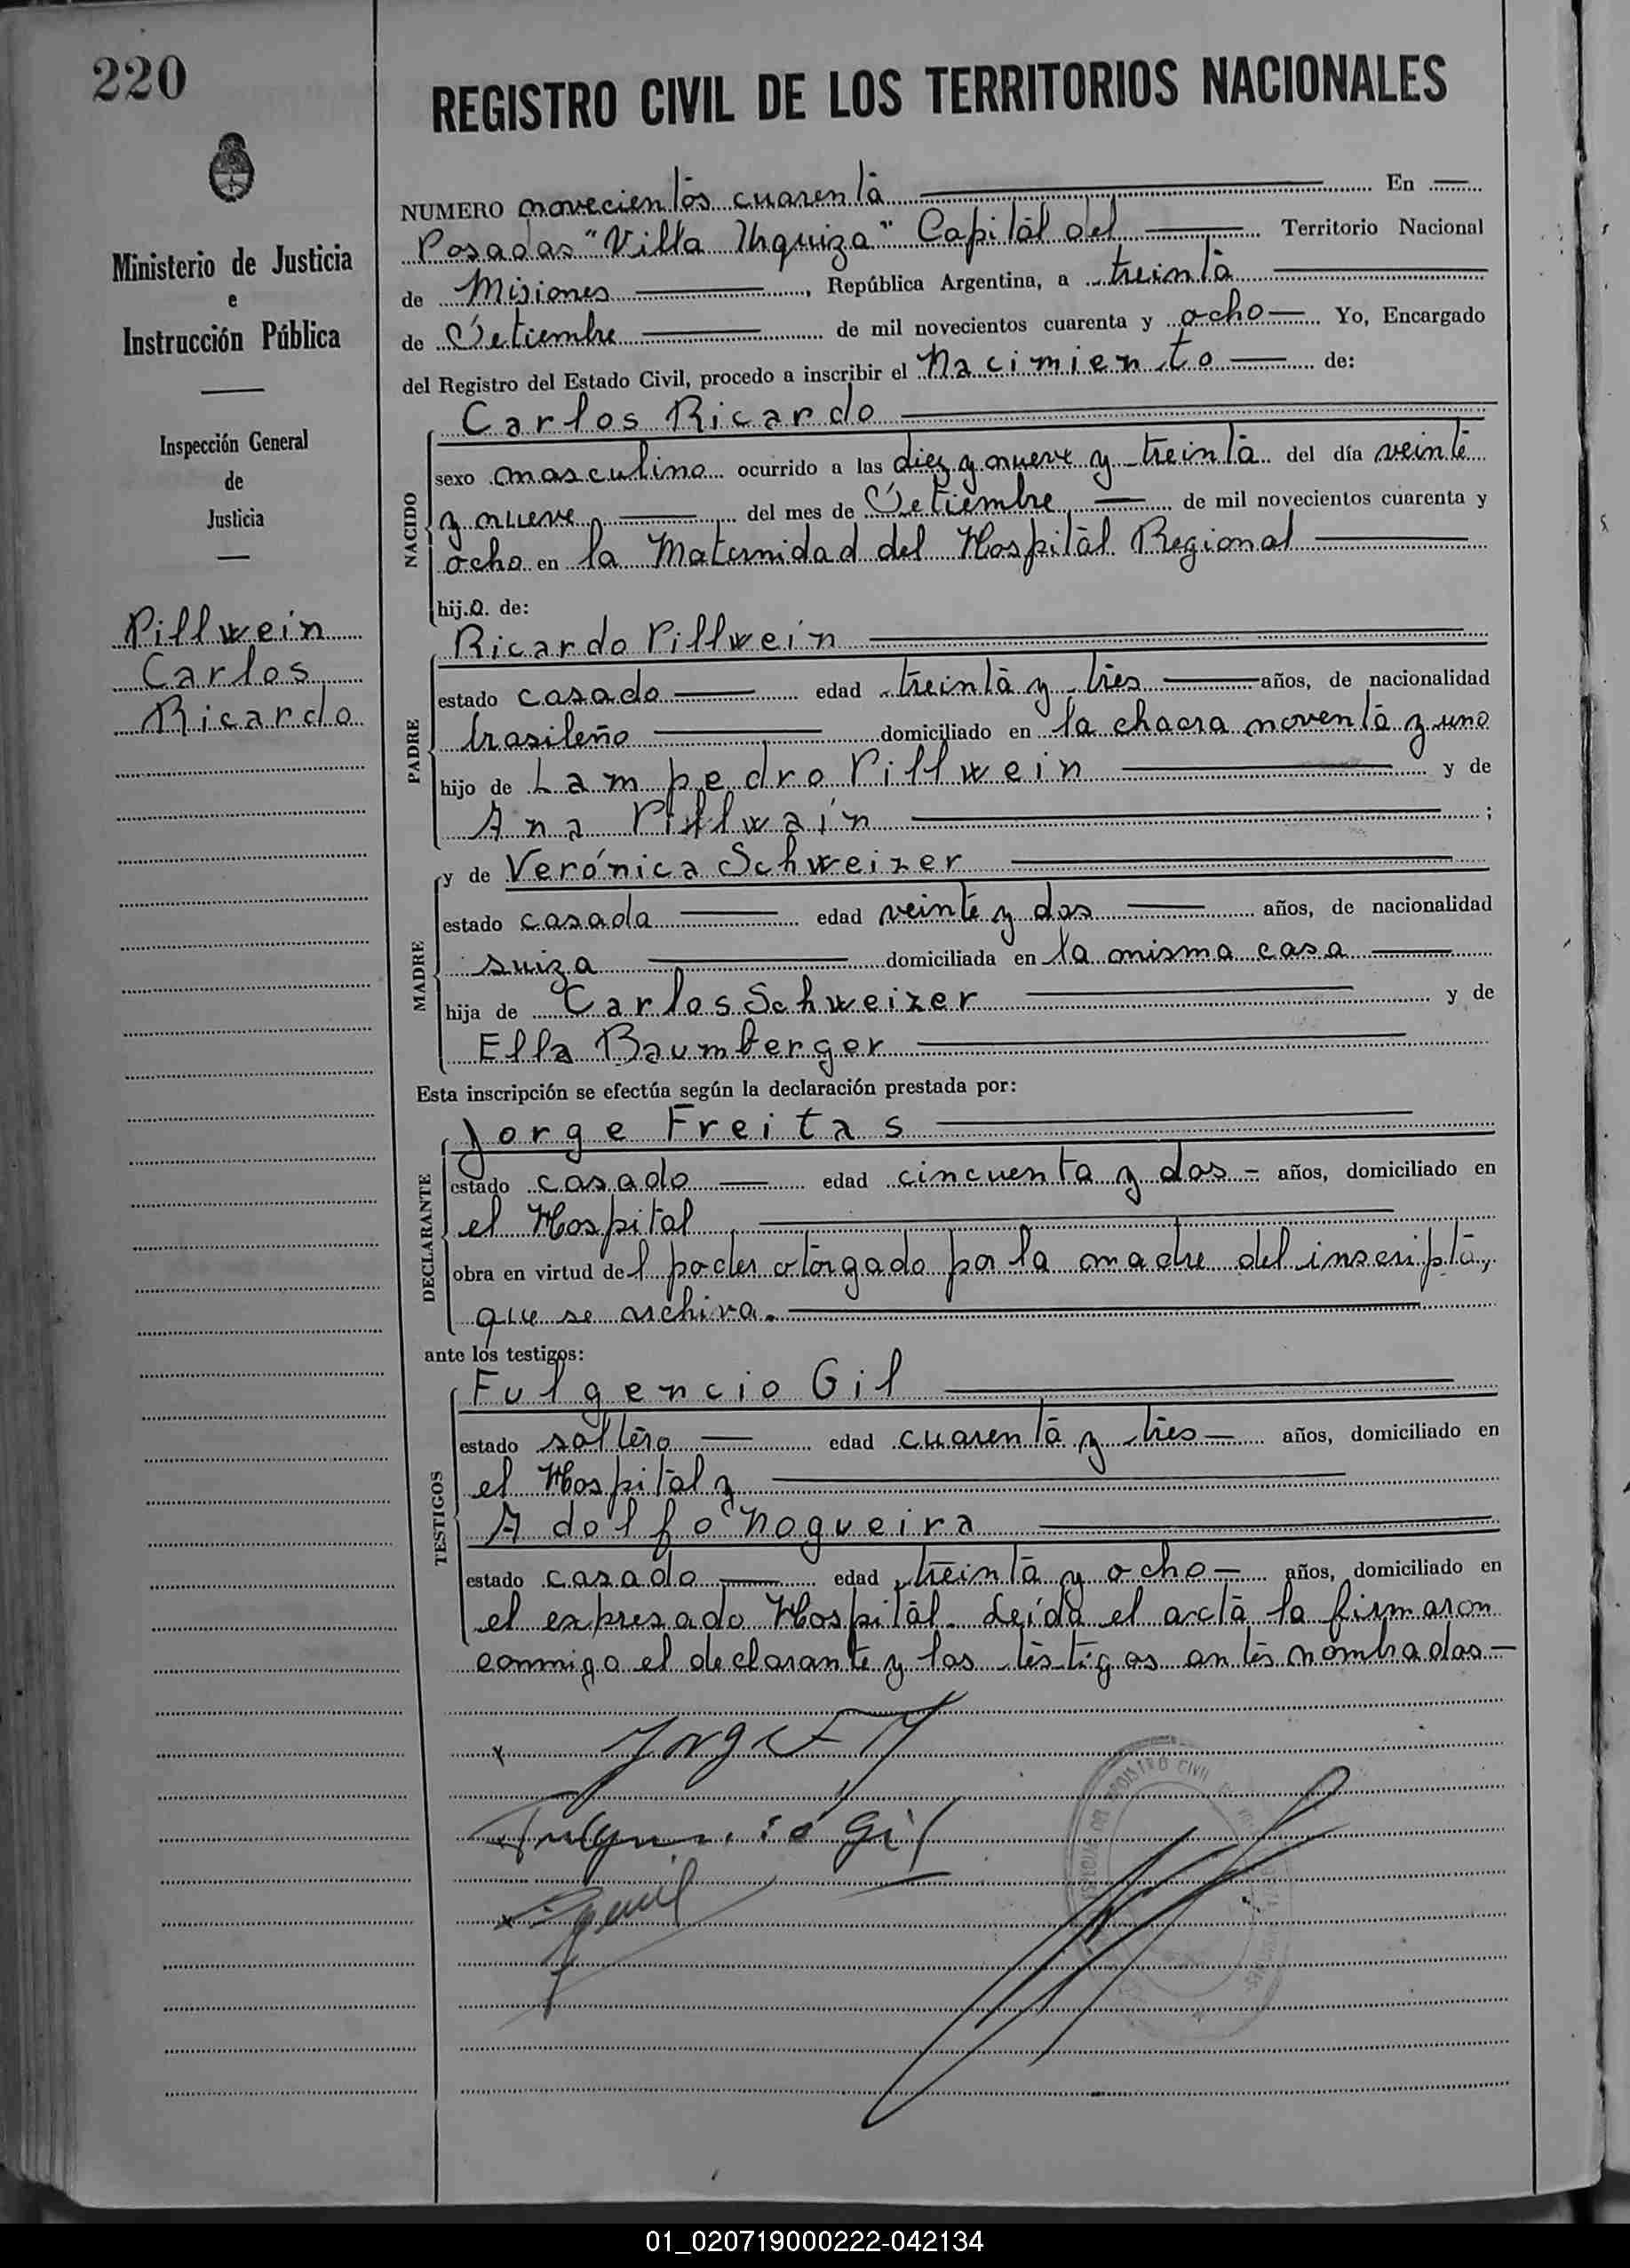 220
Ministerio de Justicia
e
Instrucción Pública
Inspección General
de
Justicia
Pillwein
Carlos
Ricardo
REGISTRO CIVIL DE LOS TERRITORIOS NACIONALES
NUMERO novecientos cuarenta En
Posadas "Villa Urquiza" Capital del Territorio Nacional
de Misiones, República Argentina, a treinta
de Setiembre de mil novecientos cuarenta y ocho Yo, Encargado
del Registro del Estado Civil, procedo a inscribir el Nacimiento de:
NACIDO
Carlos Ricardo
sexo masculino ocurrido a las diez y nueve y treinta del día veinte
y nueve del mes de Setiembre de mil novecientos cuarenta y
ocho en la Maternidad del Hospital Regional
hij.o. de:
PADRE
Ricardo Pillwein
estado casado edad treinta y tres años, de nacionalidad
brasileño domiciliado en la chacra noventa y uno
hijo de Lampedro Pillwein y de
Ana Pillwain ;
MADRE
y de Verónica Schweizer
estado casada edad veinte y dos años, de nacionalidad
suiza domiciliada en la misma casa
hija de Carlos Schweizer y de
Ella Baumberger
Esta inscripción se efectúa según la declaración prestada por:
DECLARANTE
Jorge Freitas
estado casado edad cincuenta y dos - años, domiciliado en
el Hospital
obra en virtud del poder otorgado por la madre del inscripto,
que se archiva.
ante los testigos:
TESTIGOS
Fulgencio Gil
estado soltero edad cuarenta y tres años, domiciliado en
el Hospital y
Adolfo Nogueira
estado casado edad treinta y ocho años, domiciliado en
el expresado Hospital. Leída el acta la firmaron
conmigo el declarante y los testigos antes nombrados.-
Jorge
Fulgencio Gil
REGISTRO CIVIL
01_020719000222-042134